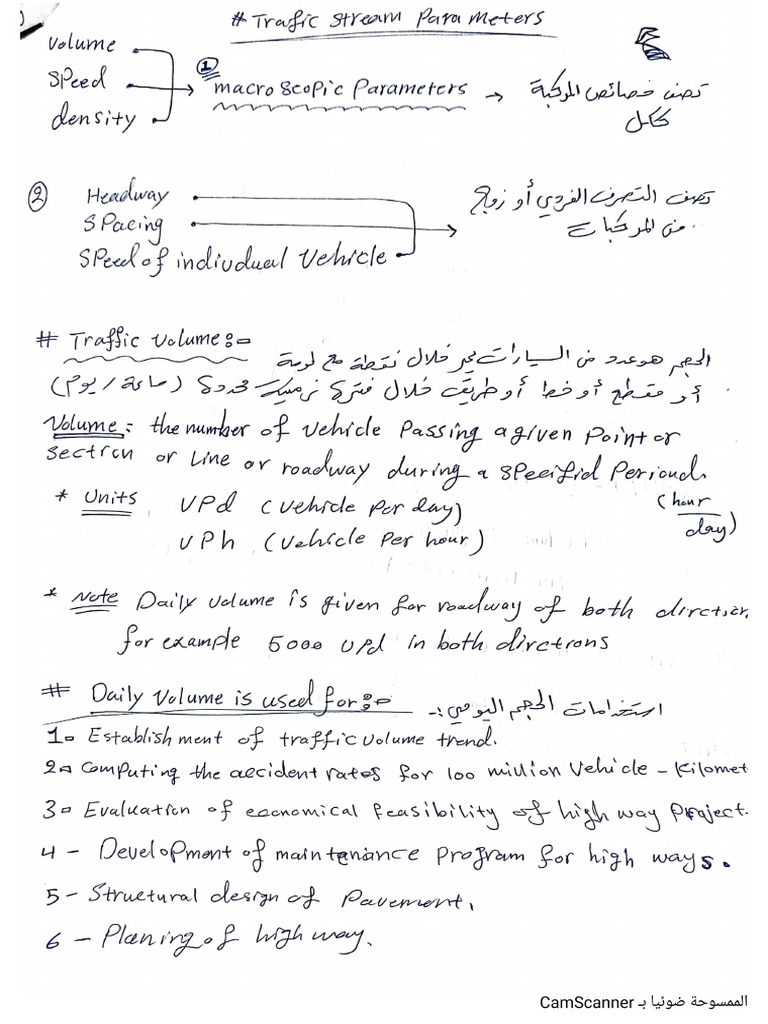 # Trafic Stream Parameters
Volume
Speed
density
① macroscopic Parameters → تصف خصائص المركبة
ككل
② Headway
Spacing
Speed of indivudual Vehicle
تصف التصرف الفردي أو زوج
من المركبات
# Traffic Volume:-
الحجم هو عدد من السيارات تمر خلال نقطة
أو مقطع أو خط أو طريق خلال فترة زمنية محددة (ساعة / يوم)
Volume: the number of Vehicle Passing a given Point or
section or Line or roadway during a specifid Periound.
(hour
day)
* Units VPd (Vehicle Per day)
VPh (Vehicle Per hour)
* Note Daily Volume is given for roadway of both direction
for example 5000 VPd in both directrons
# Daily Volume is used for:-
استخدامات الحجم اليومي:-
1- Establishment of traffic volume trend.
2- Computing the accident rates for 100 million Vehicle - Kilomet
3- Evaluation of economical feasibility of high way Project.
4 - Development of maintenance Program for high ways.
5 - Structural design of Pavement.
6 - Planing of high way.
الممسوحة ضوئيا بـ CamScanner